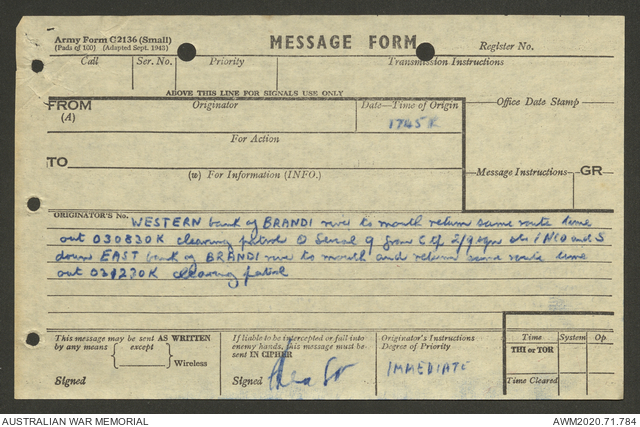 Army Form C2136 (Small)
(Pads of 100) (Adapted Sept. 1943)
MESSAGE FORM
Register No.
Call Ser. No. Priority Transmission Instructions
ABOVE THIS LINE FOR SIGNALS USE ONLY
FROM Originator Date—Time of Origin Office Date Stamp
(A)
1745K
For Action
TO
(w) For Information (INFO.)
Message Instructions GR
ORIGINATOR'S No.
WESTERN bank of BRANDI river to mouth return same route time
out 030830K clearing patrol Serial 9 from C Coy 2/9 1 NCO and 5
down EAST bank of BRANDI river to mouth and return same route time
out 031230K clearing patrol
This message may be sent AS WRITTEN
by any means except
Wireless
Signed
If liable to be intercepted or fall into
enemy hands, this message must be
sent IN CIPHER
Signed
Originator's Instructions
Degree of Priority
IMMEDIATE
Time System Op
THI or TOR
Time Cleared
AUSTRALIAN WAR MEMORIAL
AWM2020.71.784